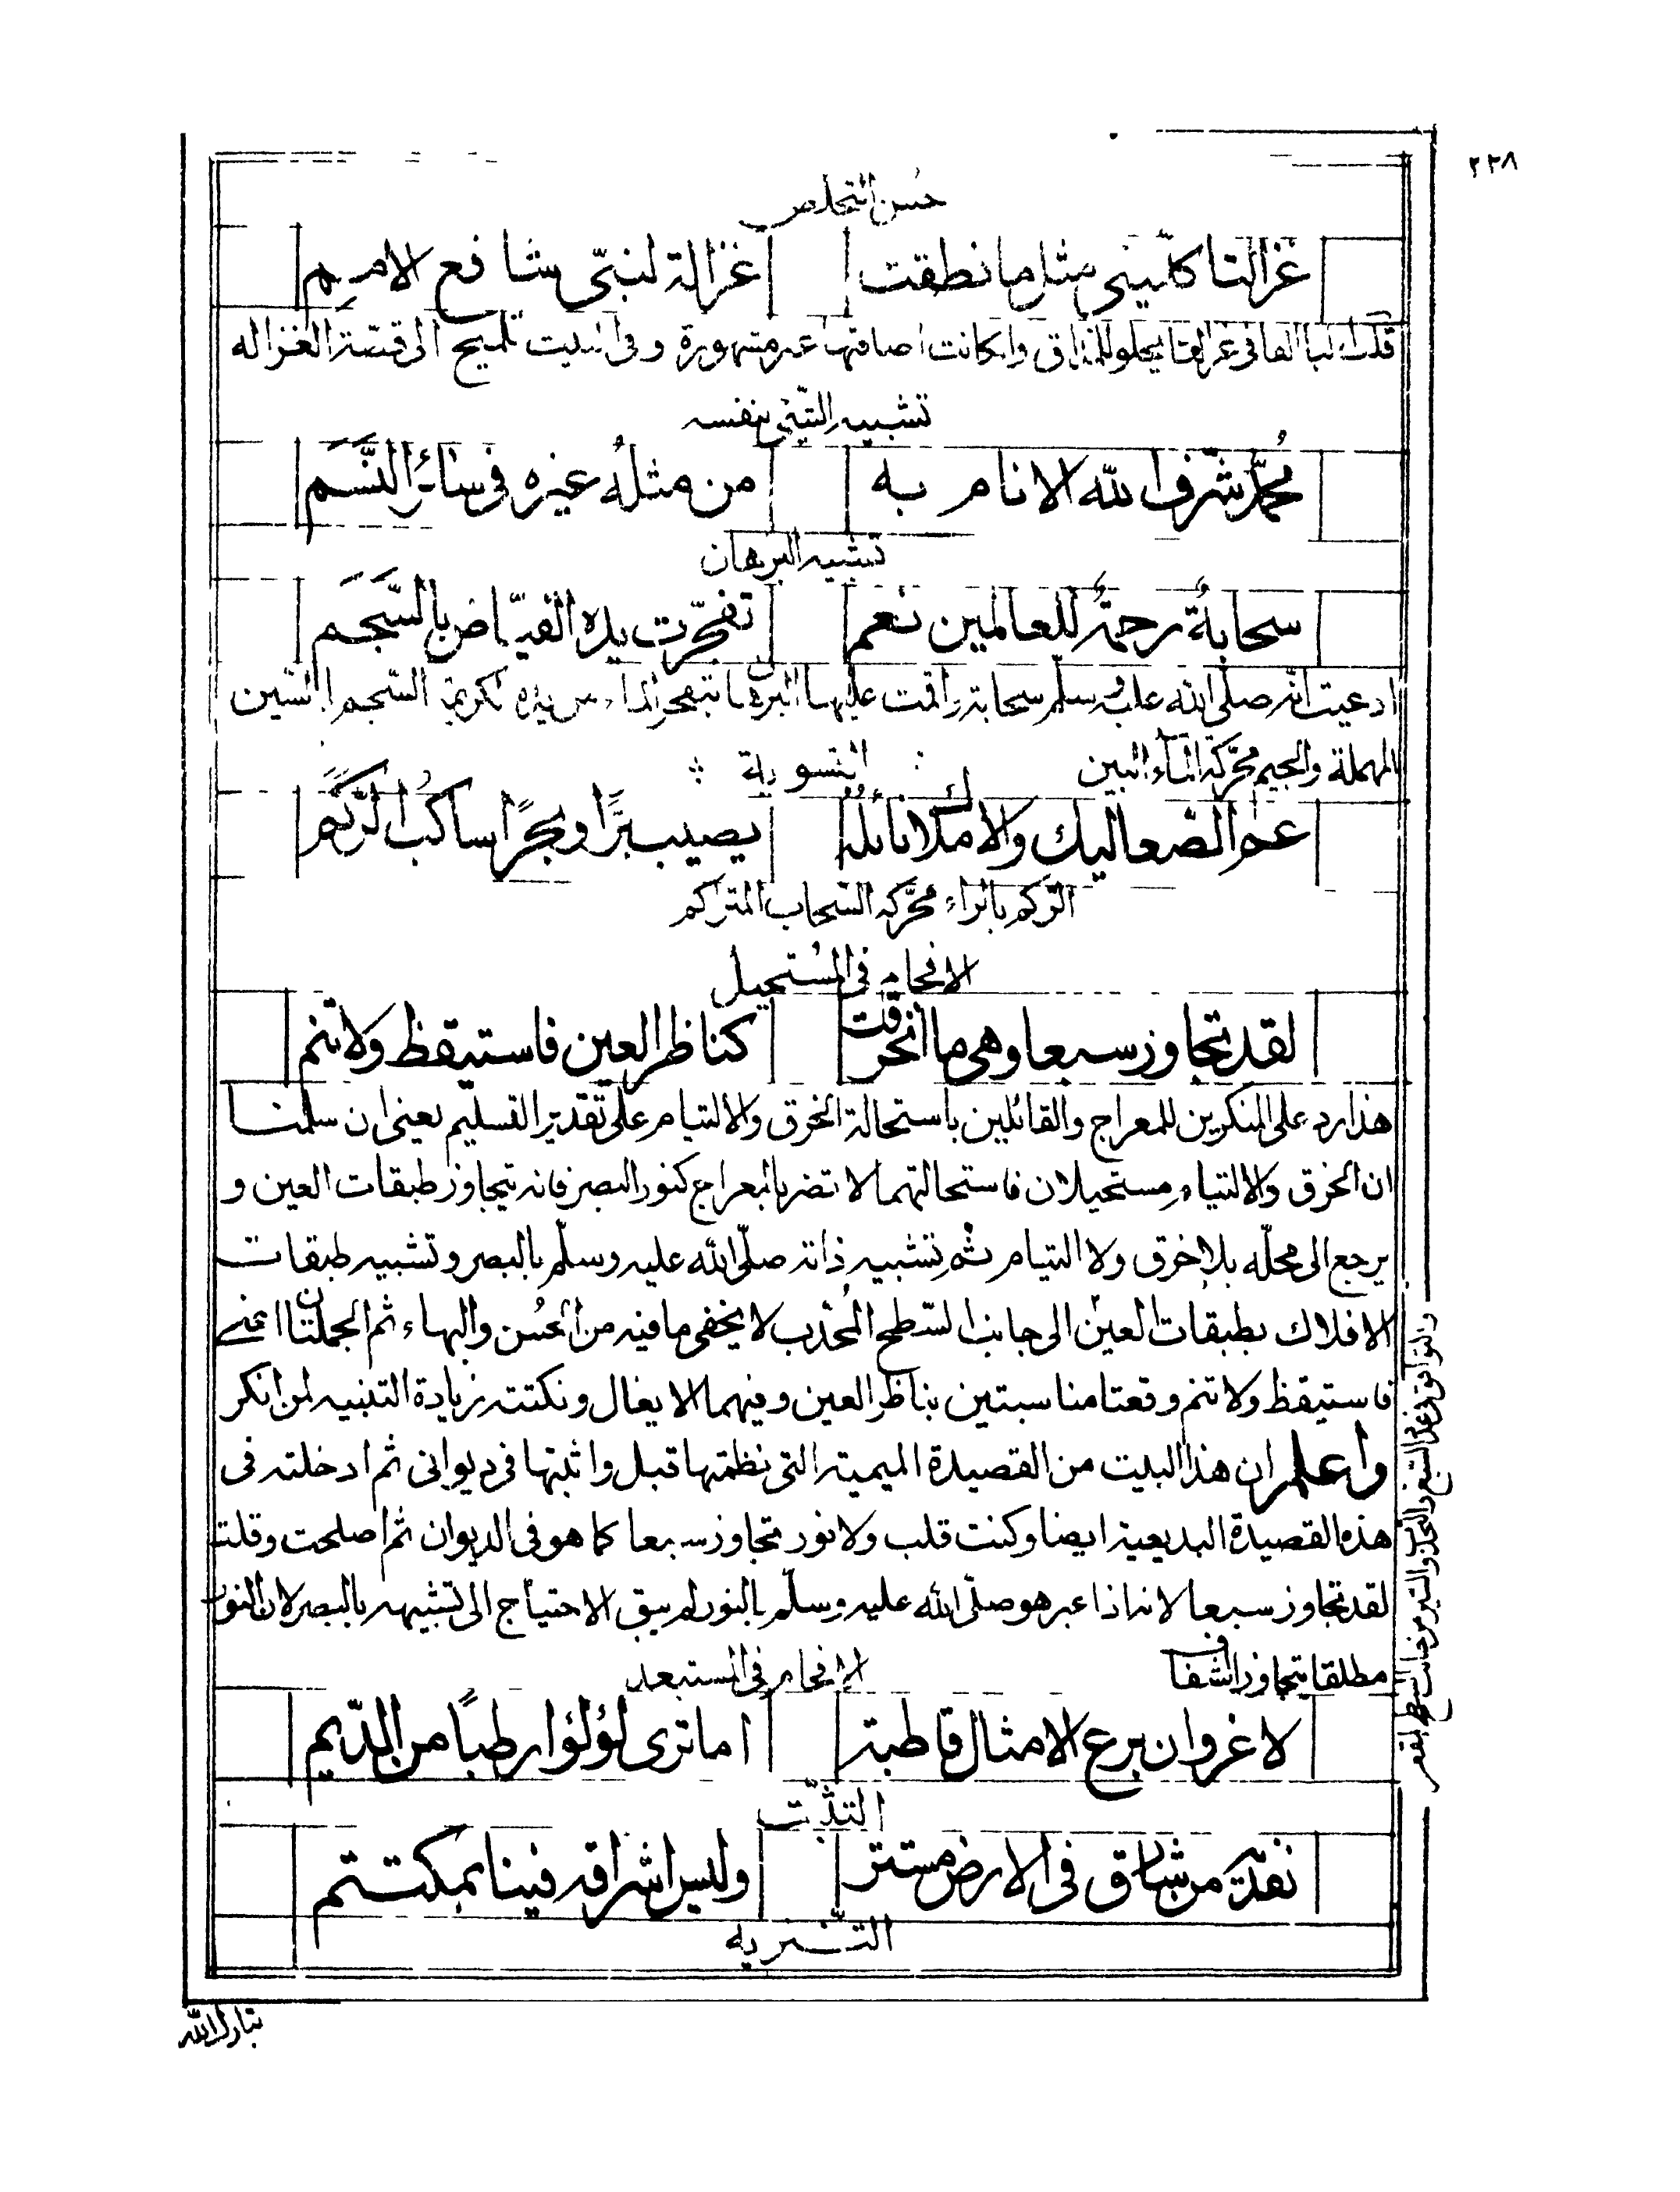 ٢٣٨
حُسن التخلص
غزالتا كلّميني مثل ما نطقت غزالة لنبيّ شافع الامم
قلت ياء الفا في غزالتا يحلو للمذاق وان كانت اضافتها غير مشهورة وفي البيت تلميح الى قصّة الغزاله
تشبيه الشئ بنفسه
محمّدٌ شرّف الله الانام به من مثلُه غيره في سائر النَّسَم
تشبيه البرهان
سحابةٌ رحمةٌ للعالمين نعم تفجّرت يده الفيّاض بالسَّجَم
ادعيت انه صلّى الله عليه وسلّم سحابة واقمت عليها البرهان بتفجر الماء من يده الكريمة السّجم بالسّين
المهملة والجيم محرّكة الماء
التسوية
عم الصعاليك والاملاك نائلُهُ يصيب برًّا وبحرًا ساكبُ الرَّكَم
الرّكم بالراء محرّكه السّحاب المتراكم
الافحام في المُستحيل
لقد تجاوز سبعا وهي ما انخرقت كناظر العين فاستيقظ ولا تنم
هذا رد على المنكرين للمعراج والقائلين باستحالة الخرق والالتيام على تقدير التسليم يعني ان سلمنا
ان الخرق والالتيام مستحيلان فاستحالتهما لا تضر بالمعراج كنور البصر فانه يتجاوز طبقات العين و
يرجع الى محلّه بلا خرق ولا التيام ثم تشبيه ذاته صلّى الله عليه وسلّم بالبصر وتشبيه طبقات
الافلاك بطبقات العين الى جانب السّطح المُحدّب لا يخفى ما فيه من الحُسن والبهاء ثم الجملتان اعنے
فاستيقظ ولا تنم وقعتا مناسبتين بناظر العين وفيهما الايغال ونكتته زيادة التنبيه لمن انكر
واعلم ان هذا البيت من القصيدة الميمية التي نظمتها قبل واثبتها في ديواني ثم ادخلته في
هذه القصيدة البديعية ايضا وكنت قلت ولا نور تجاوز سبعا كما هو في الديوان ثم اصلحت وقلت
لقد تجاوز سبعا لانه اذا عبر هو صلّى الله عليه وسلّم بالنور لم يبق الاحتياج الى تشبيهه بالبصر لان النور
مطلقا يتجاوز الشفاف
الافحام في المستبعد
لا غرو ان برع الامثال قاطبة اما ترى لؤلؤا رطبًا من الدّيم
التذبّب
في الارض مستتر وليس اشراقه فينا بمكتتم
التنزيه
تبارك الله